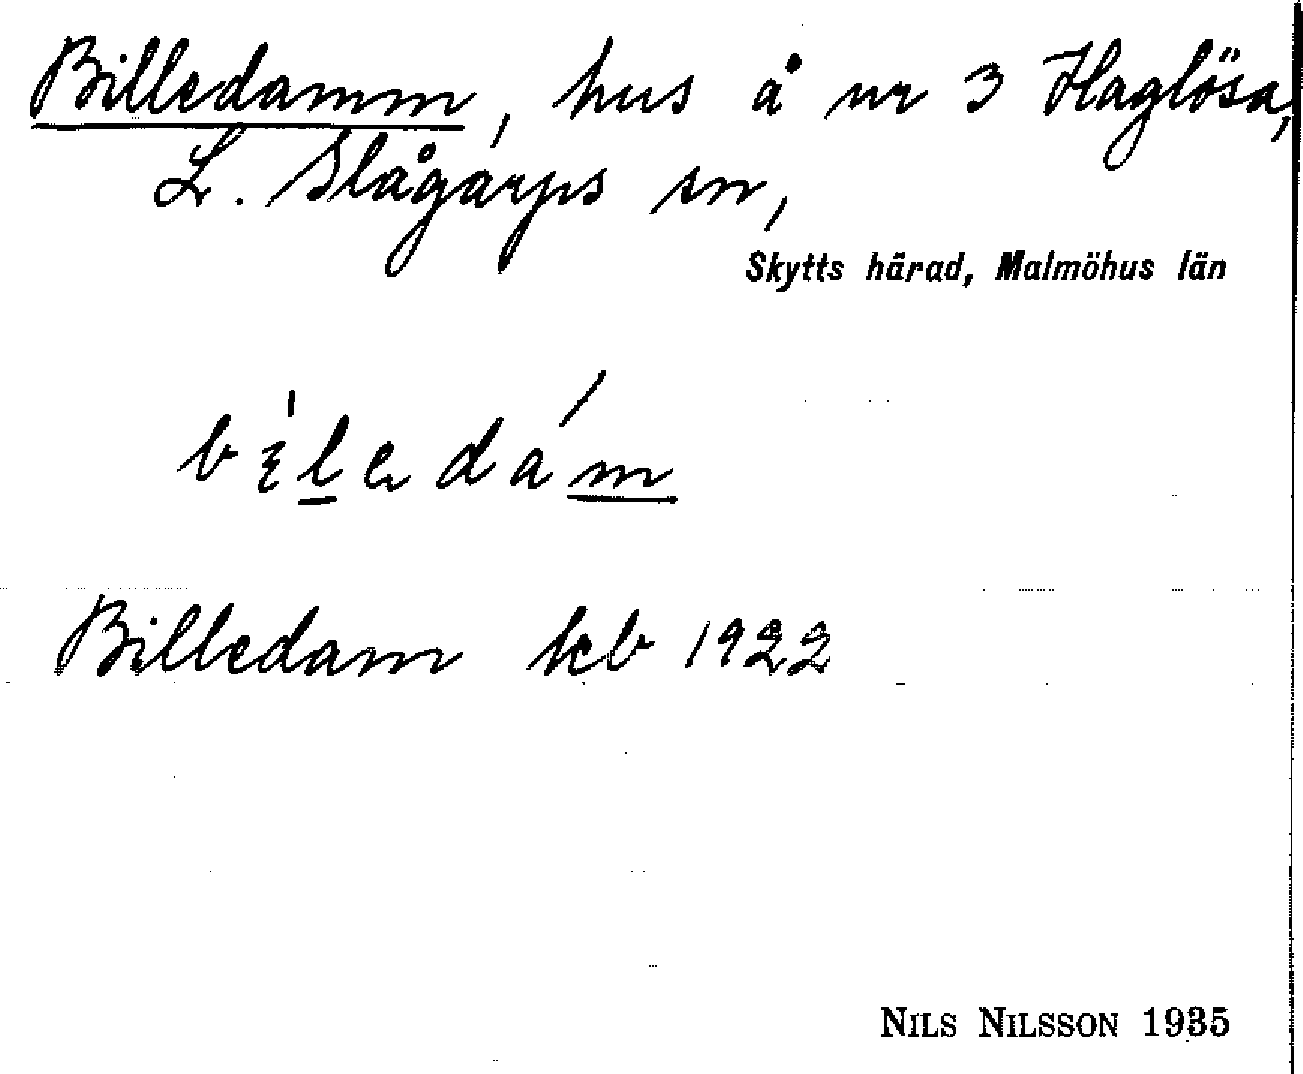 Billedamm, hus å nr 3 Haglösa,
L. Slågarps sn,
Skytts härad, Malmöhus län
Billedam kb 1922
NILS NILSSON 1935